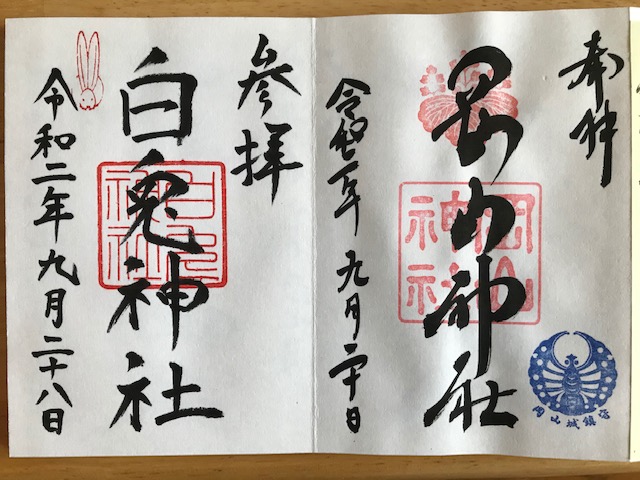 奉拝
岡山神社
岡山神社
岡山城鎮守
令和二年九月二十日
参拝
白兎神社
白兎神社
令和二年九月二十八日